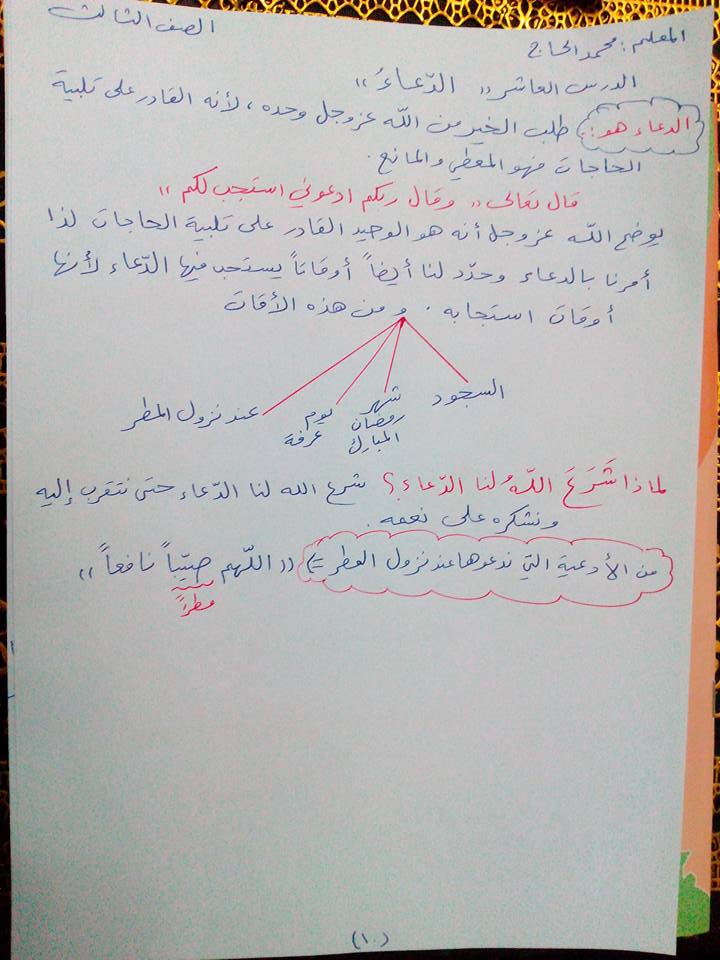 المعلم : محمد الحاج
الصف الثالث
الدرس العاشر " الدّعاءُ "
الدعاء هو : طلب الخير من اللّه عزوجل وحده ، لأنه القادر على تلبية
الحاجات فهو المعطي والمانع .
قال تعالى " وقال ربكم ادعوني استجب لكم "
يوضح اللّه عزوجل أنه هو الوحيد القادر على تلبية الحاجات لذا
أمرنا بالدعاء وحدّد لنا أيضاً أوقاتاً يستجب فيها الدّعاء لأنها
أوقات استجابه . و من هذه الأقات
السجود
شهر رمضان المبارك
يوم عرفة
عند نزول المطر
لماذا شَرَعَ اللّهُ لنا الدّعاء ؟ شرع الله لنا الدّعاء حتى نتقرب إليه
ونشكره على نعمه .
من الأدعية التي ندعوها عند نزول المطر = " اللّهم صيّباً نافعاً "
مطراً
(١٠)